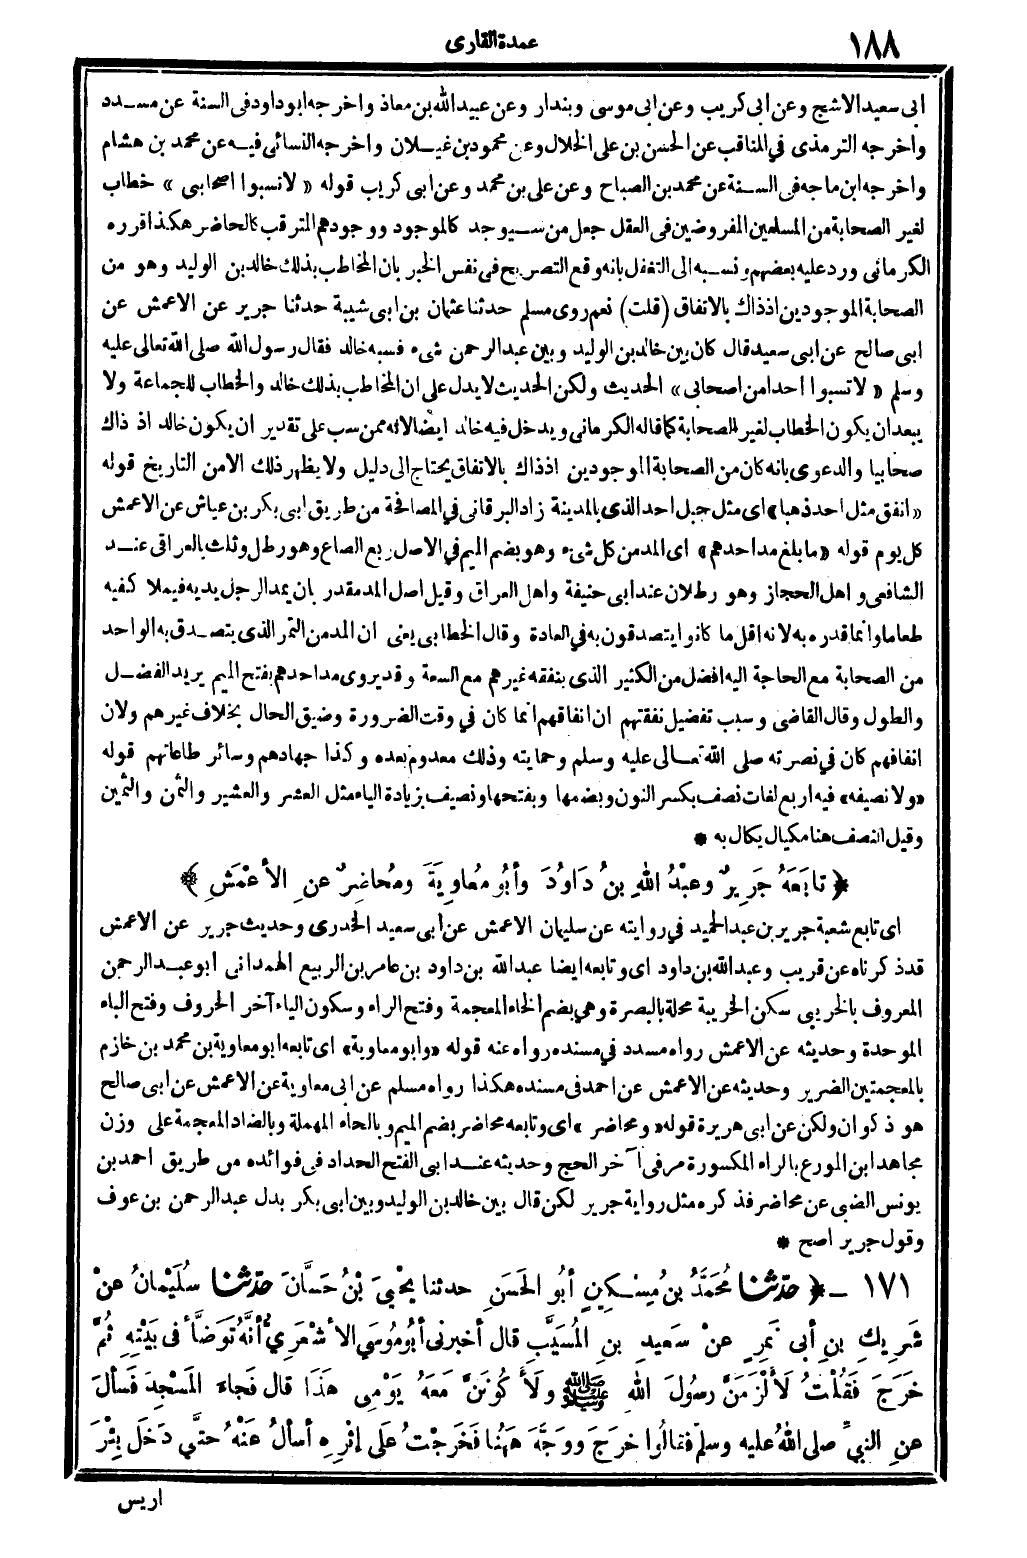 ١٨٨
عمدة القارى
ابى سعيد الاشج وعن ابى كريب وعن ابى موسى وبندار وعن عبيد الله بن معاذ واخرجه ابو داود فى السنة عن مسدد
واخرجه الترمذى في المناقب عن الحسن بن على الخلال وعن محمود بن غيلان واخرجه النسائى فيه عن محمد بن هشام
واخرجه ابن ماجه فى السنة عن محمد بن الصباح وعن على بن محمد وعن ابى كريب قوله « لا تسبوا اصحابى » خطاب
لغير الصحابة من المسلمين المفروضين فى العقل جعل من سيوجد كالموجود ووجودهم المترقب كالحاضر هكذا قرره
الكرمانى ورد عليه بعضهم ونسبه الى التغفل بانه وقع التصريح فى نفس الخبر بان المخاطب بذلك خالد بن الوليد وهو من
الصحابة الموجودين اذ ذاك بالاتفاق (قلت) نعم روى مسلم حدثنا عثمان بن ابى شيبة حدثنا جرير عن الاعمش عن
ابى صالح عن ابى سعيد قال كان بين خالد بن الوليد وبين عبد الرحمن شىء فسبه خالد فقال رسول الله صلى الله تعالى عليه
وسلم « لا تسبوا احدا من اصحابى » الحديث ولكن الحديث لا يدل على ان المخاطب بذلك خالد والخطاب للجماعة ولا
يبعد ان يكون الخطاب لغير الصحابة كما قاله الكرمانى ويدخل فيه خالد ايضا لانه ممن سب على تقدير ان يكون خالد اذ ذاك
صحابيا والدعوى بانه كان من الصحابة الموجودين اذ ذاك بالاتفاق يحتاج الى دليل ولا يظهر ذلك الا من التاريخ قوله
« انفق مثل احد ذهبا » اى مثل جبل احد الذى بالمدينة زاد البرقانى في المصافحة من طريق ابى بكر بن عياش عن الاعمش
كل يوم قوله « ما بلغ مد احدهم » اى المد من كل شىء وهو بضم الميم في الاصل ربع الصاع وهو رطل وثلث بالعراقى عند
الشافعى و اهل الحجاز وهو رطلان عند ابى حنيفة واهل العراق وقيل اصل المد مقدر بان يمد الرجل يديه فيملا كفيه
طعاما وانما قدره به لانه اقل ما كانوا يتصدقون به في العادة وقال الخطابى يعنى ان المد من التمر الذى يتصدق به الواحد
من الصحابة مع الحاجة اليه افضل من الكثير الذى ينفقه غيرهم مع السعة وقد يروى مد احدهم بفتح الميم يريد الفضل
والطول وقال القاضى وسبب تفضيل نفقتهم ان انفاقهم انما كان في وقت الضرورة وضيق الحال بخلاف غيرهم ولان
انفاقهم كان في نصرته صلى الله تعالى عليه وسلم وحمايته وذلك معدوم بعده وكذا جهادهم وسائر طاعاتهم قوله
« ولا نصيفه » فيه اربع لغات نصف بكسر النون وبضمها وبفتحها ونصيف بزيادة الياء مثل العشر والعشير والثمن والثمين
وقيل النصف هنا مكيال يكال به *
﴿ تابَعَهُ جَرِيرٌ وعبْدُ اللهِ بنُ دَاودَ وأبُو مُعاوِيَةَ ومُحاضِرٌ عنِ الأعْمَشِ ﴾
اى تابع شعبة جرير بن عبد الحميد في روايته عن سليمان الاعمش عن ابى سعيد الخدرى وحديث جرير عن الاعمش
قد ذكرناه عن قريب وعبد الله بن داود اى وتابعه ايضا عبد الله بن داود بن عامر بن الربيع الهمدانى ابو عبد الرحمن
المعروف بالخريبى سكن الخريبة محلة بالبصرة وهي بضم الخاء المعجمة وفتح الراء وسكون الياء آخر الحروف وفتح الباء
الموحدة وحديثه عن الاعمش رواه مسدد في مسنده رواه عنه قوله « وابو معاوية » اى تابعه ابو معاوية بن محمد بن خازم
بالمعجمتين الضرير وحديثه عن الاعمش عن احمد فى مسنده هكذا رواه مسلم عن ابى معاوية عن الاعمش عن ابى صالح
هو ذكوان ولكن عن ابى هريرة قوله « ومحاضر » اى وتابعه محاضر بضم الميم وبالحاء المهملة وبالضاد المعجمة على وزن
مجاهد ابن المورع بالراء المكسورة مر فى آخر الحج وحديثه عند ابى الفتح الحداد فى فوائده من طريق احمد بن
يونس الضبى عن محاضر فذكره مثل رواية جرير لكن قال بين خالد بن الوليد وبين ابى بكر بدل عبد الرحمن بن عوف
وقول جرير اصح *
١٧١ - ﴿ حدّثنا مُحَمَّدُ بن مِسْكِينٍ أبُو الحَسَنِ حدثنا يحْيىَ بْنُ حَسَّانَ حدّثنا سُلَيْمانُ عنْ
شَرِيكِ بنِ أبى نَمِرٍ عنْ سَعيدِ بنِ المُسَيَّبِ قال أخبرنى أبُو مُوسَي الأشْعَرِيُّ أنَّهُ تَوَضَّأَ فى بَيْتِهِ ثُمَّ
خَرَجَ فَقُلْتُ لَألْزَمَنَّ رسُولَ اللهِ ﷺ ولَأَكُونَنَّ مَعَهُ يَوْمِى هَذَا قال فَجاءَ المَسْجِدَ فَسألَ
عنِ النبيِّ صلى اللهُ عليه وسلم فقالُوا خرَجَ ووَجَّهَ هَهُنا فَخَرَجْتُ عَلَى إثْرِهِ أسْألُ عَنْهُ حتَّي دَخَلَ بِئْرَ
اريس